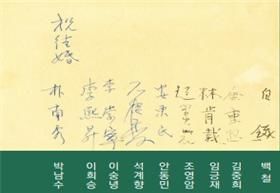 祝結婚
朴南秀
李熙昇
李崇寧
安東民
林肯載
白鐵
박남수
이희승
이숭녕
석계향
안동민
조영암
임긍재
김중희
백철